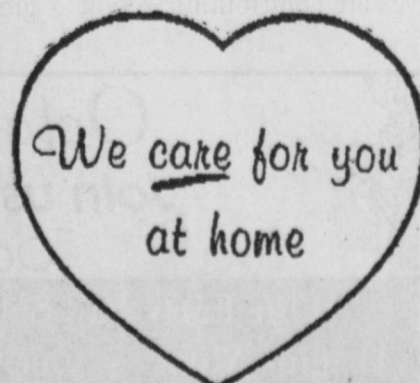 We care for you
at home